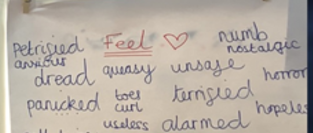 petrified Feel numb
anxious nostalgic
dread queasy unsafe horror
panicked toes terrified
curl hopeles
useless alarmed